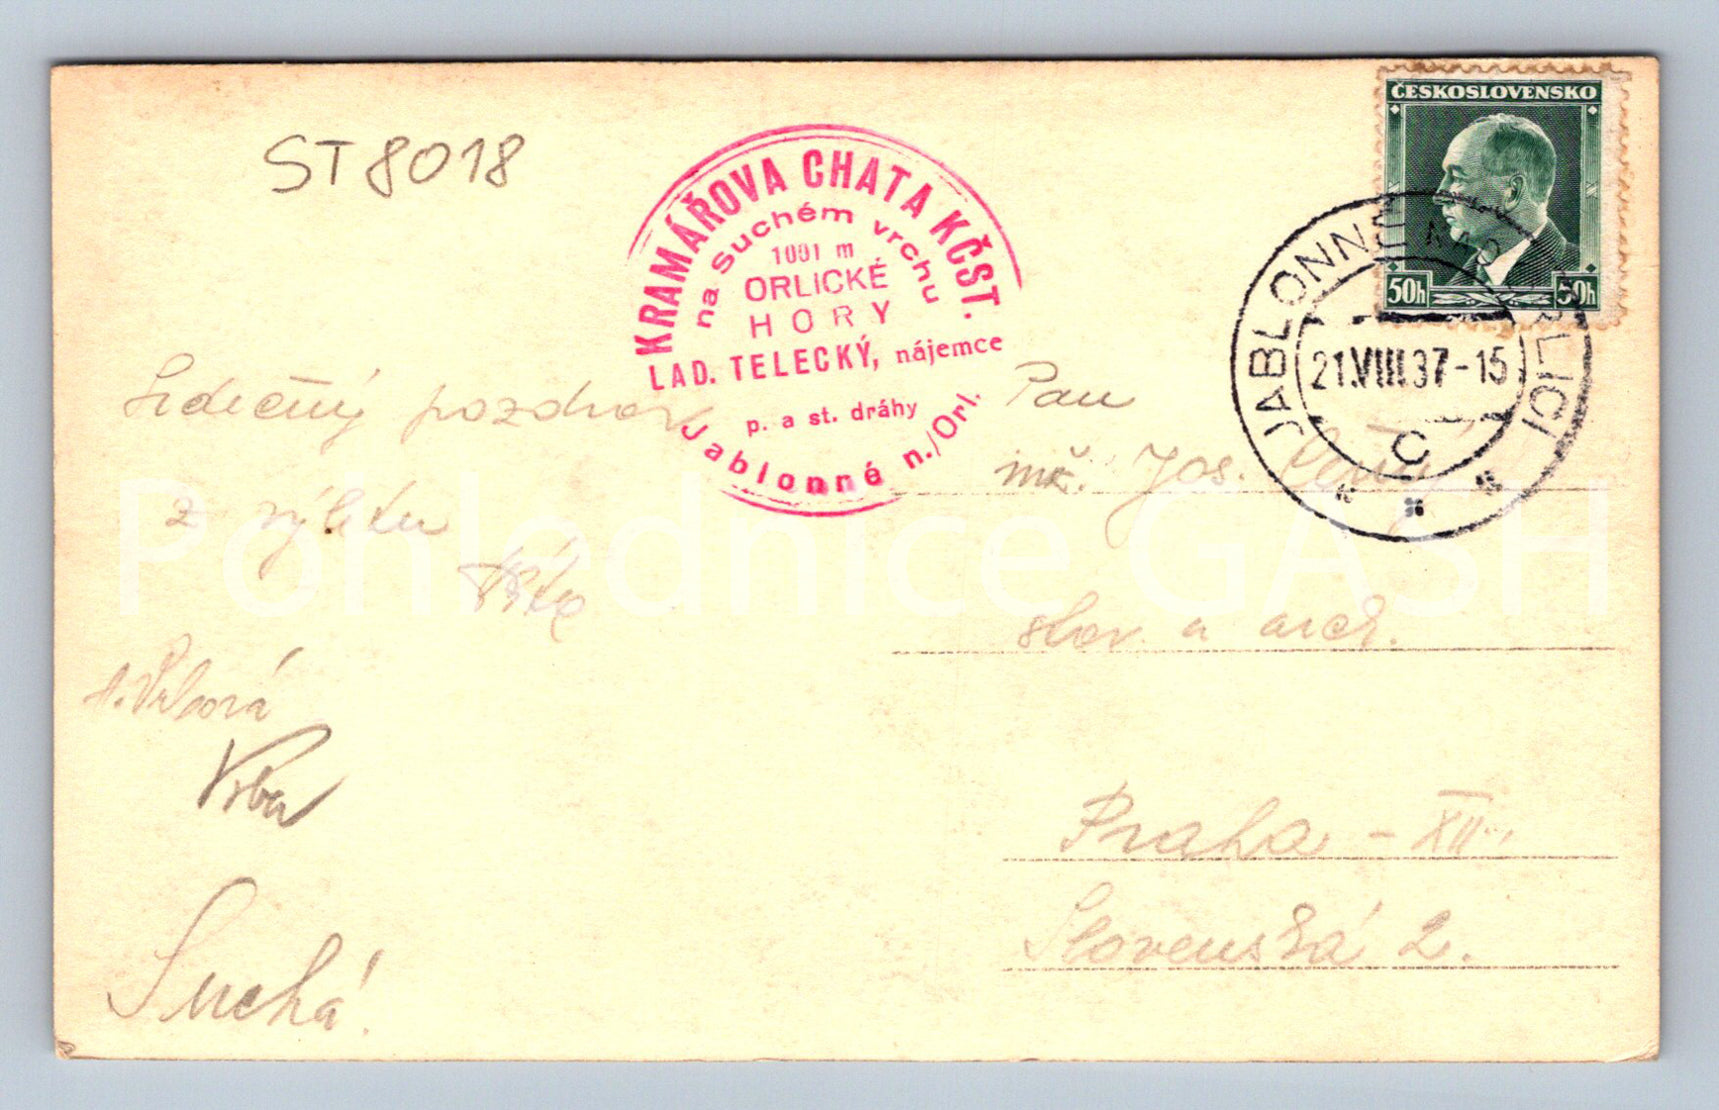 ST 8018
ČESKOSLOVENSKO
50h 50h
JABLONNÉ N. ORLICÍ
21.VIII.37-15
C
KRAMÁŘOVA CHATA KČST.
na Suchém vrchu
1001 m
ORLICKÉ
HORY
LAD. TELECKÝ, nájemce
p. a st. dráhy
Jablonné n./Orl.
Srdečný pozdrav
z výletu
Vrbová
Vrba
Suchá
Pan
Jos. Černý
slov. a arch.
Praha - XII.
Slovenská 2.
Pohlednice GASH